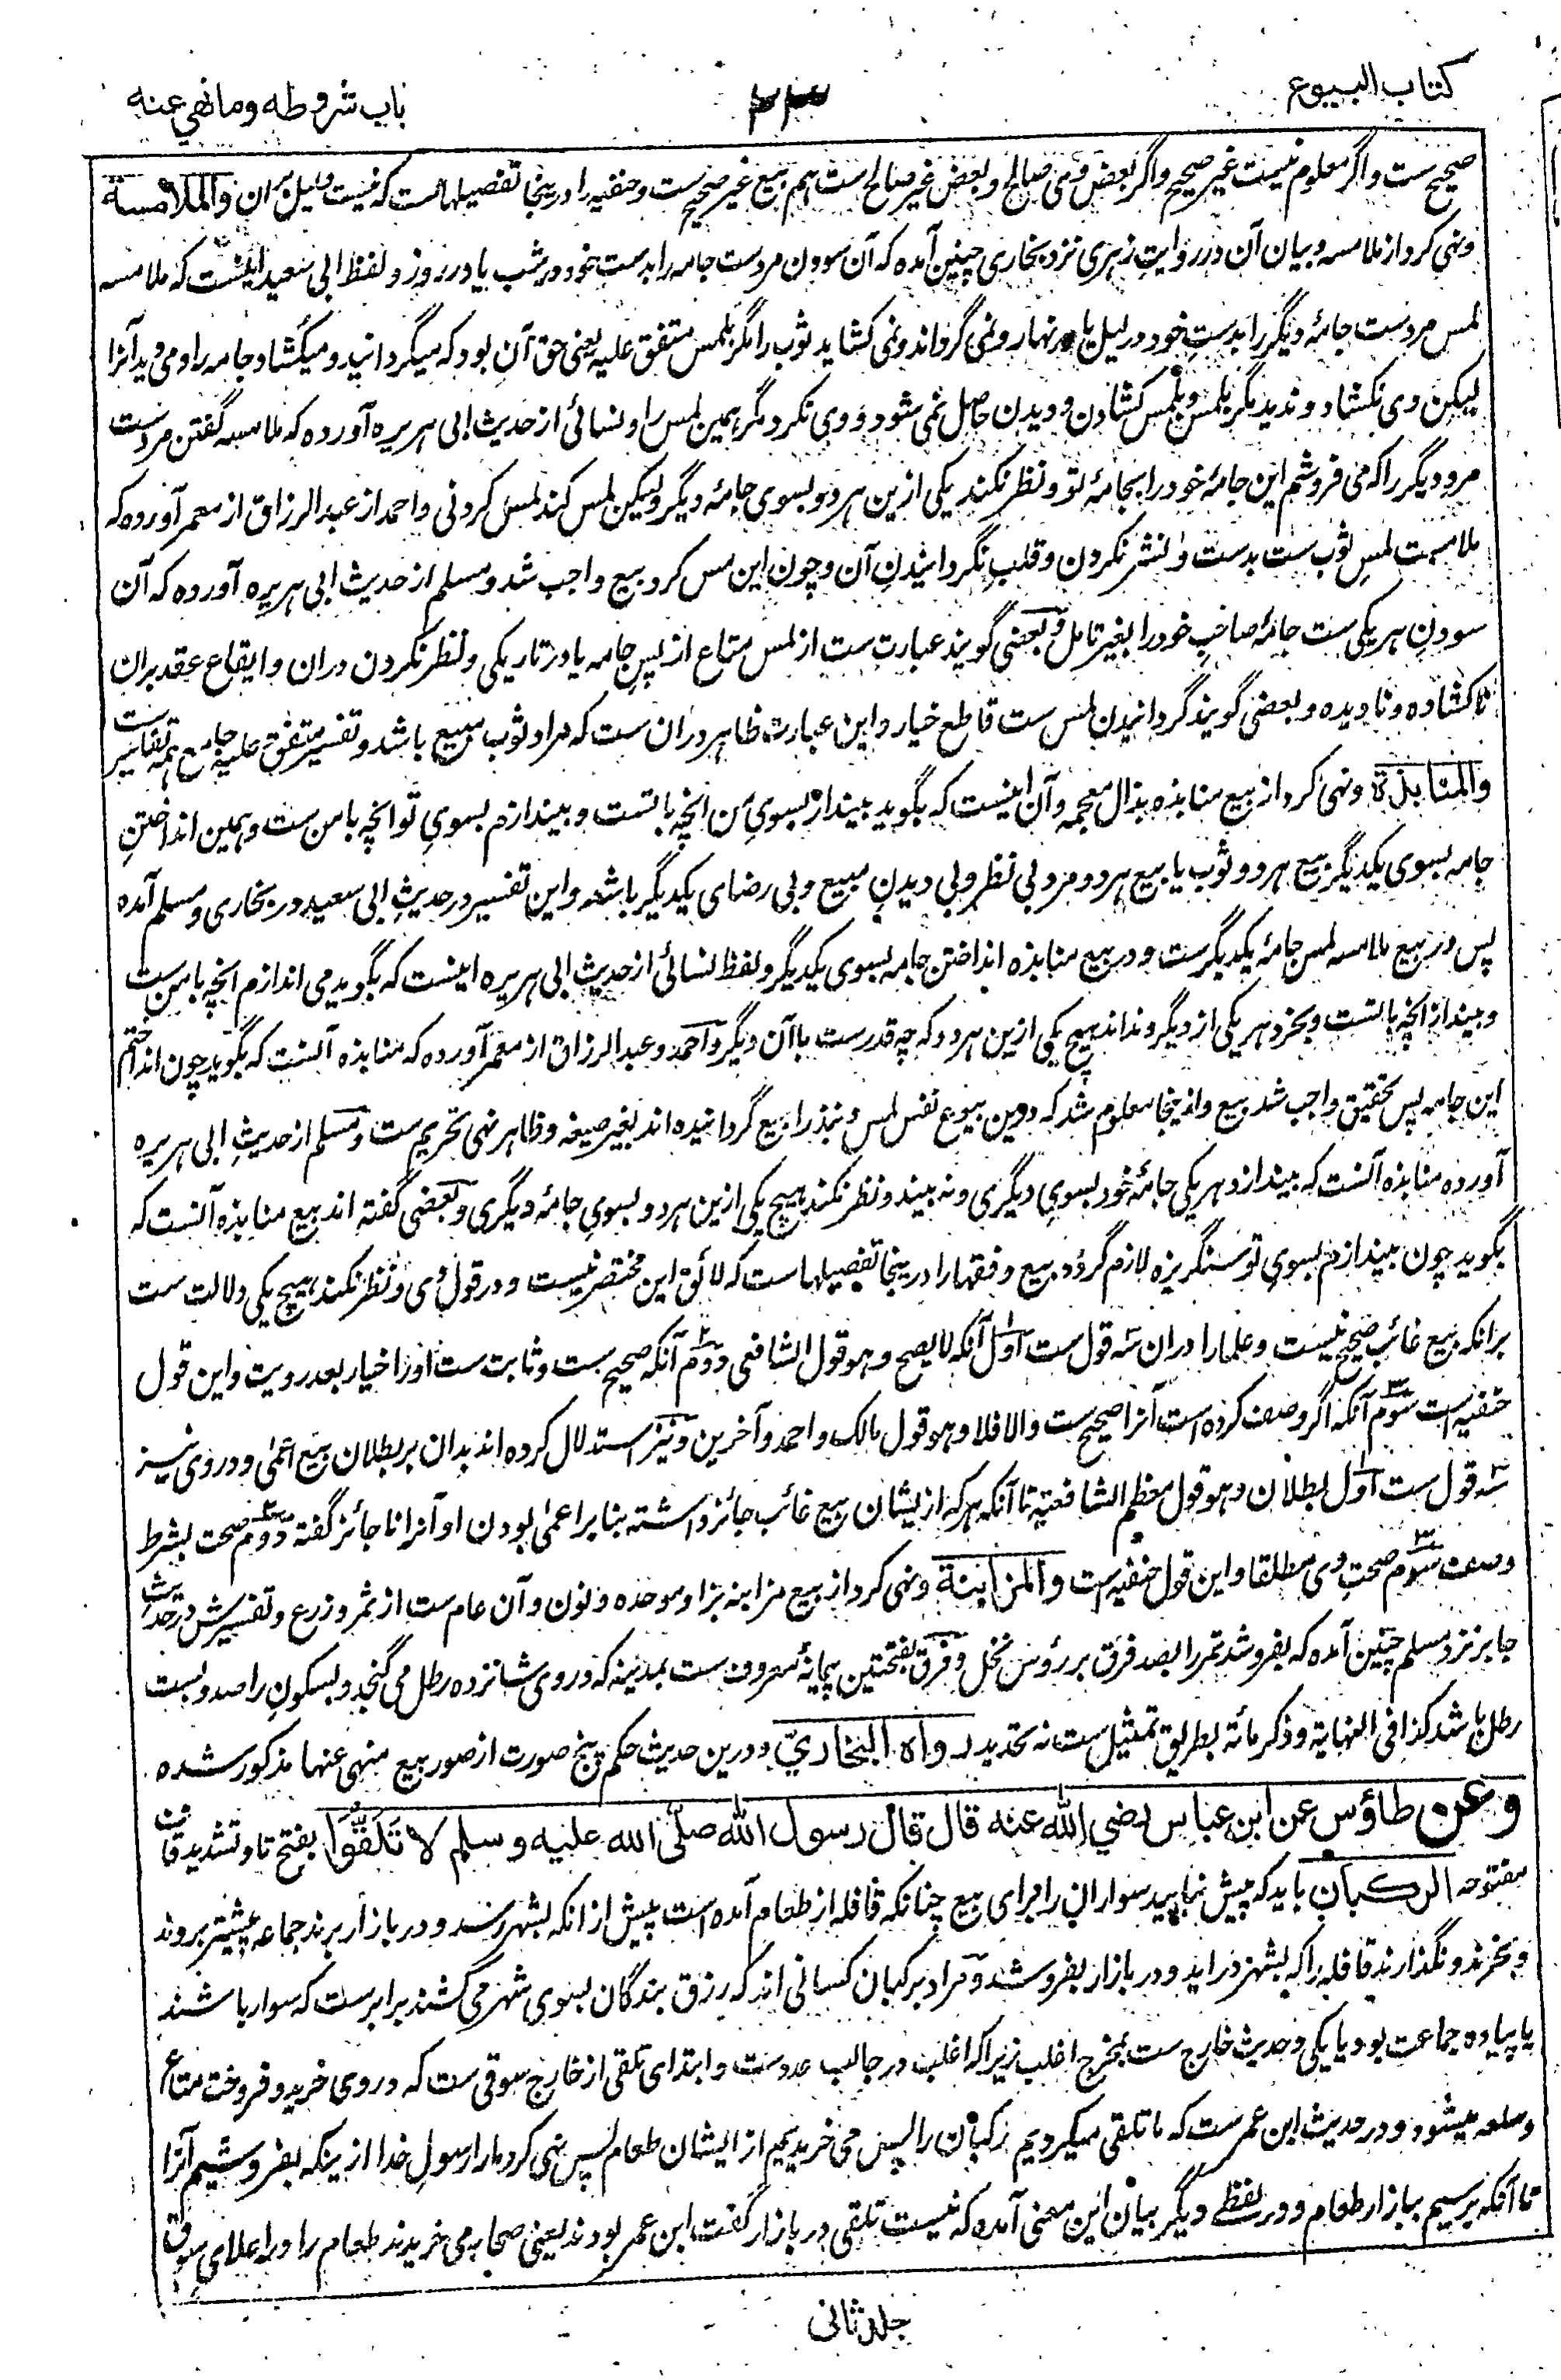 كتاب البيوع
٢٣
باب شروطه وما نهي عنه
صحیح ست و اگر معلوم نیست غیر صحیح و اگر بعض وی صالح و بعض غیر صالح ست هم بیع غیر صحیح ست و حنفیه را درینجا تفصیلهاست که نیست دلیل بران والملامسة
و نهی کرد از ملامسه و بیان آن در روایت زهری نزد بخاری چنین آمده که آن سودن مردست جامه را بدست خود در شب یا در روز و لفظ ابی سعید اینست که ملامسه
لمس مردست جامهٔ دیگر را بدست خود در لیل یا در نهار و نمی گرداند و نمی کشاید ثوب را مگر بلمس متفق علیه یعنی حق آن بود که میگردانید و میکشاد جامه را و می دید آنرا
لیکن وی نکشاد و ندید مگر بلمس و بلمس کشادن و دیدن حاصل نمی شود و وی نکرد مگر همین لمس را و نسائی از حدیث ابی هریره آورده که ملامسه گفتن مردست
مرد دیگر را که می فروشم این جامهٔ خود را بجامهٔ تو و نظر نکند یکی ازین هر دو بسوی جامهٔ دیگر و لیکن لمس کند لمس کردنی و احمد از عبد الرزاق از معمر آورده که
ملامست لمس ثوب ست بدست و نشر نکردن و قلب نگردانیدن آن و چون این مس کرد بیع واجب شد و مسلم از حدیث ابی هریره آورده که آن
سودن هر یکی ست جامهٔ صاحب خود را بغیر تامل و بعضی گویند عبارت ست از لمس متاع از پس جامه یا در تاریکی و نظر نکردن دران و ایقاع عقد بران
ناکشاده و نادیده و بعضی گویند گردانیدن لمس ست قاطع خیار و این عبارت ظاهر دران ست که مراد ثوب مبیع باشد و تفسیر متفق علیه جامع همه تفاسیر ست
والمنابذة و نهی کرد از بیع منابذه بذال معجمه و آن اینست که بگوید بینداز بسوی من انچه با تست و بیندازم بسوی تو انچه با من ست و همین انداختن
جامه بسوی یکدیگر بیع هر دو ثوب یا بیع هر دو مرد بی نظر و بی دیدن مبیع و بی رضای یکدیگر باشد و این تفسیر در حدیث ابی سعید در بخاری و مسلم آمده
پس در بیع ملامسه لمس جامهٔ یکدیگرست و در بیع منابذه انداختن جامه بسوی یکدیگر و لفظ نسائی از حدیث ابی هریره اینست که بگوید می اندازم انچه با من ست
و بینداز انچه با تست و بخرد هر یکی از دیگر و نداند هیچ یکی ازین هر دو که چه قدرست با آن دیگر و احمد و عبد الرزاق از معمر آورده که منابذه آنست که بگوید چون انداختم
این جامه پس بتحقیق واجب شد بیع و ازینجا معلوم شد که درین بیوع نفس لمس و نبذ را بیع گردانیده اند بغیر صیغه و ظاهر نهی تحریم ست و مسلم از حدیث ابی هریره
آورده منابذه آنست که بیندازد هر یکی جامهٔ خود بسوی دیگری و نه بیند و نظر نکند هیچ یکی ازین هر دو بسوی جامهٔ دیگری و بعضی گفته اند بیع منابذه آنست که
بگوید چون بیندازم بسوی تو سنگریزه لازم گردد بیع و فقها را درینجا تفصیلهاست که لائق این مختصر نیست و در قول وی و نظر نکند هیچ یکی دلالت ست
برانکه بیع غائب صحیح نیست و علما را دران سه قول ست اول آنکه لا یصح و هو قول الشافعی دوم آنکه صحیح ست و ثابت ست او را خیار بعد رویت و این قول
حنفیه است سوم آنکه اگر وصف کرده است آنرا صحیح ست والا فلا و هو قول مالک و احمد و آخرین و نیز استدلال کرده اند بدان بر بطلان بیع اعمی و در وی نیز
سه قول ست اول بطلان و هو قول معظم الشافعیة تا آنکه هر که ازیشان بیع غائب جائز داشته بنا بر اعمی بودن او آنرا ناجائز گفته دوم صحت بشرط
وصف سوم صحت وی مطلقا و این قول حنفیه است والمزابنة و نهی کرد از بیع مزابنه بزا و موحده و نون و آن عام ست از ثمر و زرع و تفسیرش در حدیث
جابر نزد مسلم چنین آمده که بفروشد تمر را بصد فرق بر رؤس نخل و فرق بفتحتین پیمانهٔ معروف ست بمدینه که در وی شانزده رطل می گنجد و بسکون را صد و بست
رطل باشد کذا فی النهایة و ذکر مائة بطریق تمثیل ست نه تحدید رواه البخاريّ و درین حدیث حکم پنج صورت از صور بیع منهی عنها مذکور شده
وعن طاؤس عن ابن عباس رضي الله عنه قال قال رسول الله صلّى الله عليه وسلم لا تَلَقَّوُا بفتح تا و تشدید قاف
مفتوحه الركبان باید که پیش نیایید سواران را برای بیع چنانکه قافله از طعام آمده است پیش ازانکه بشهر رسد و در بازار برند جماعه پیشتر بروند
و بخرند و نگذارند قافله را که بشهر دراید و در بازار بفروشد و مراد برکبان کسانی اند که رزق بندگان بسوی شهر می کشند برابرست که سوار باشند
یا پیاده جماعت بود یا یکی و حدیث خارج ست مخرج اغلب زیرا که اغلب در جالب عددست و ابتدای تلقی از خارج سوقی ست که در وی خرید و فروخت متاع
و سلعه میشود و در حدیث ابن عمرست که ما تلقی میکردیم رکبان را پس می خریدیم از ایشان طعام پس نهی کرد ما را رسول خدا ازینکه بفروشیم آنرا
تا آنکه برسیم ببازار طعام و در لفظے دیگر بیان این معنی آمده که نیست تلقی در بازار گفت ابن عمر بودند یعنی صحابه می خریدند طعام را در اعلای سوق
جلد ثانی